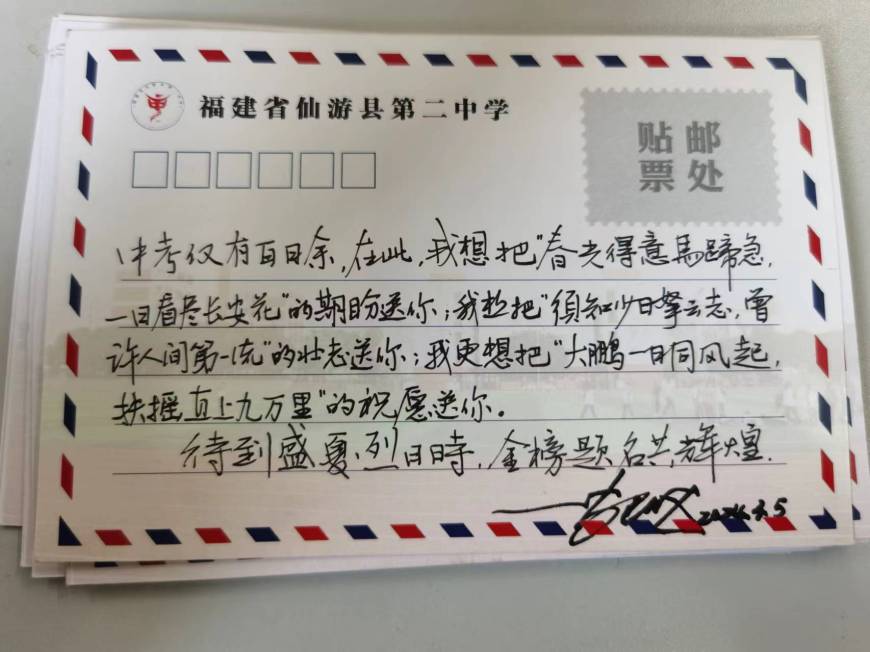 福建省仙游县第二中学
贴邮
票处
中考仅有百日余,在此,我想把"春光得意馬蹄急,
一日看尽长安花"的期盼送你;我想把"須知少日拏云志,曾
许人间第一流"的壮志送你;我更想把"大鹏一日同风起,
扶摇直上九万里"的祝愿送你。
待到盛夏烈日时,金榜题名共辉煌.
2024.3.5